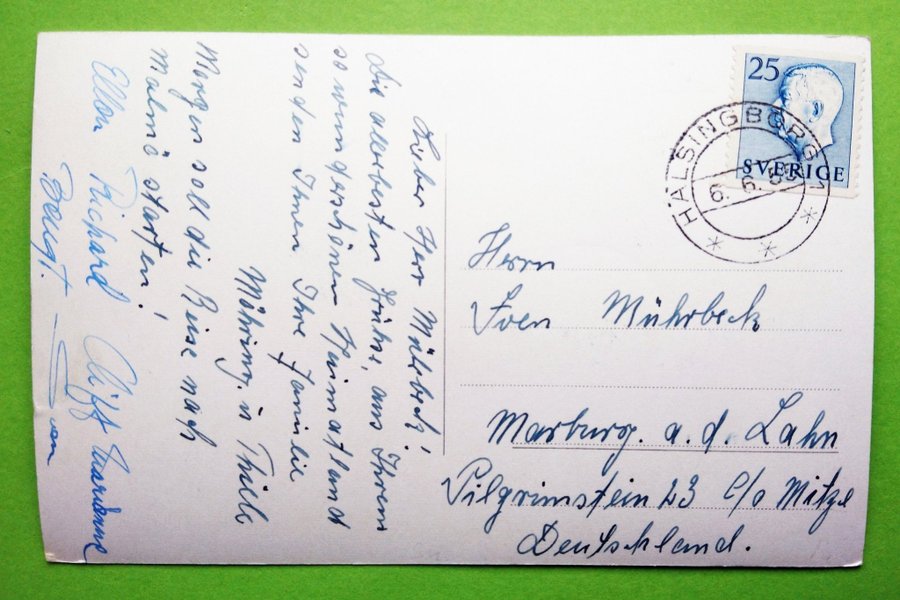 Lieber Herr Mührbeck!
Die allerbesten Grüße, aus Ihrem
so wunderschönen Heimatland
senden Ihnen Ihre Familie
Möhring. u Thiele
Morgen soll die Reise nach
Malmö starten!
Ellen Richard
Bengt.
25
SVERIGE
HÄLSINGBORG 1
6. 6. 5
Herrn
Sven Mührbeck
Marburg. a. d. Lahn
Pilgrimstein 23 C/o Mitze
Deutschland.